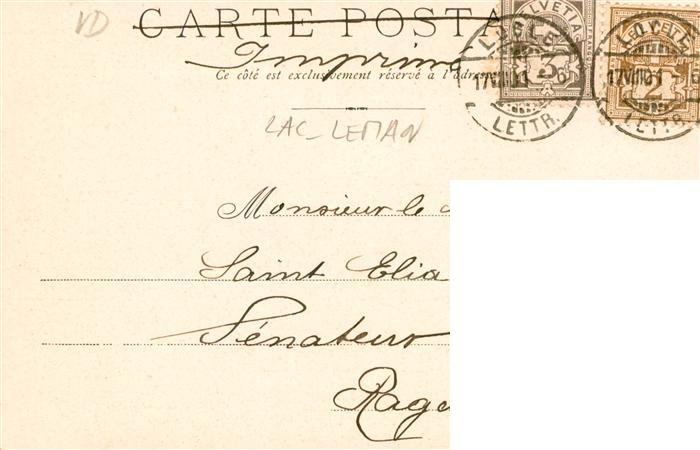 VD
CARTE POSTA
Imprimé
Ce côté est exclusivement réservé à l'adresse
LAC_LEMAN
HELVETIA
3
2
LETTR.
LETTR.
Monsieur le
Saint Elia
Sénateur
Rage